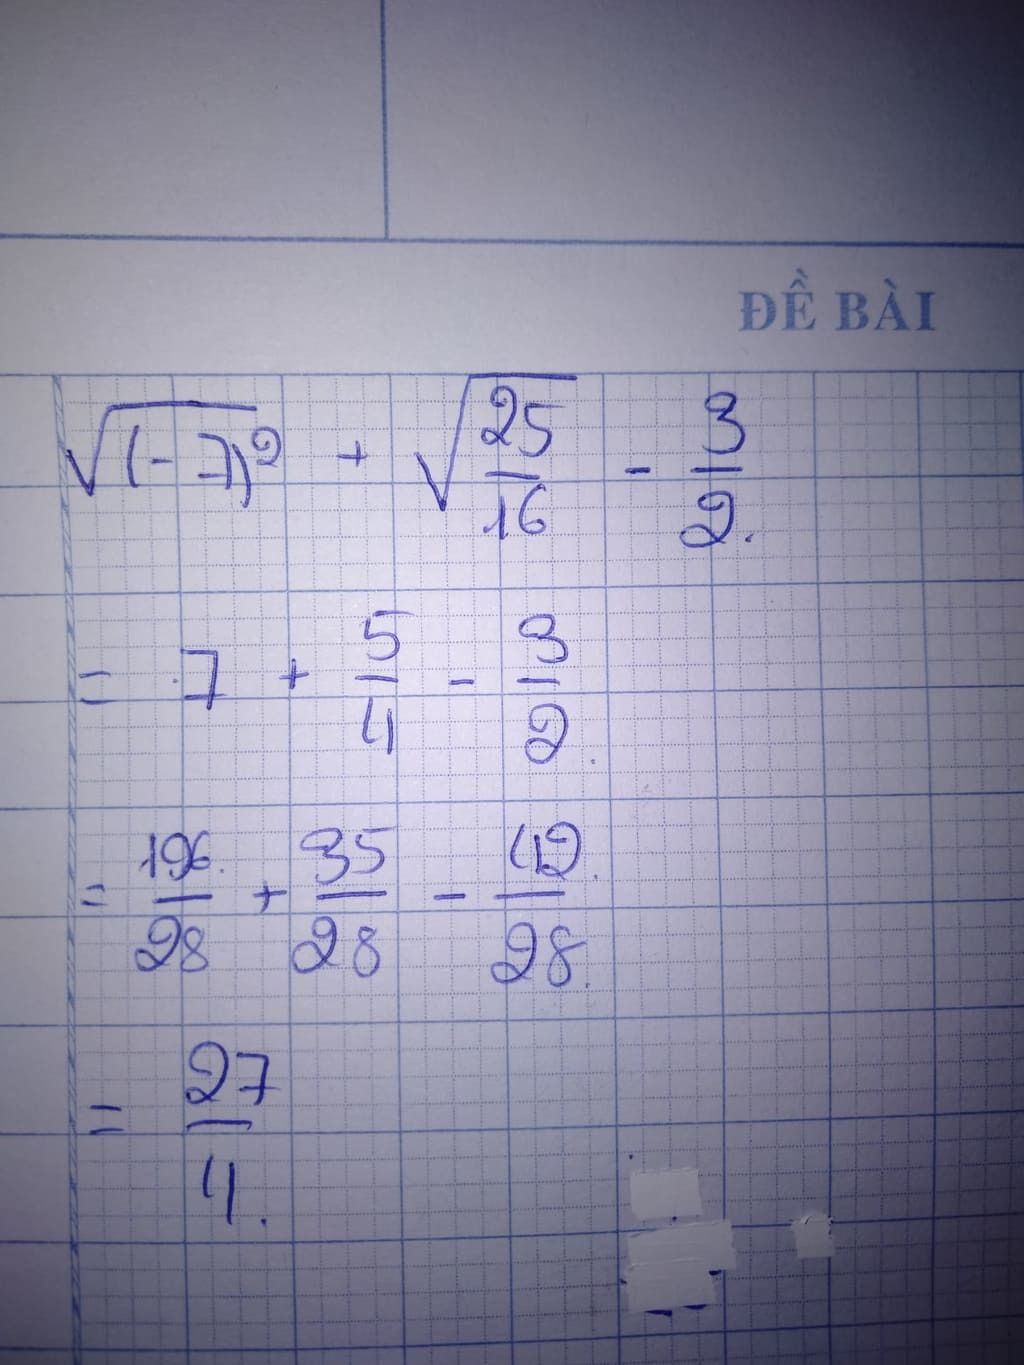 ĐỀ BÀI
√(-7)² + √25/16 - 3/2.
= 7 + 5/4 - 3/2.
= 196/28 + 35/28 - 42/28.
= 27/4.